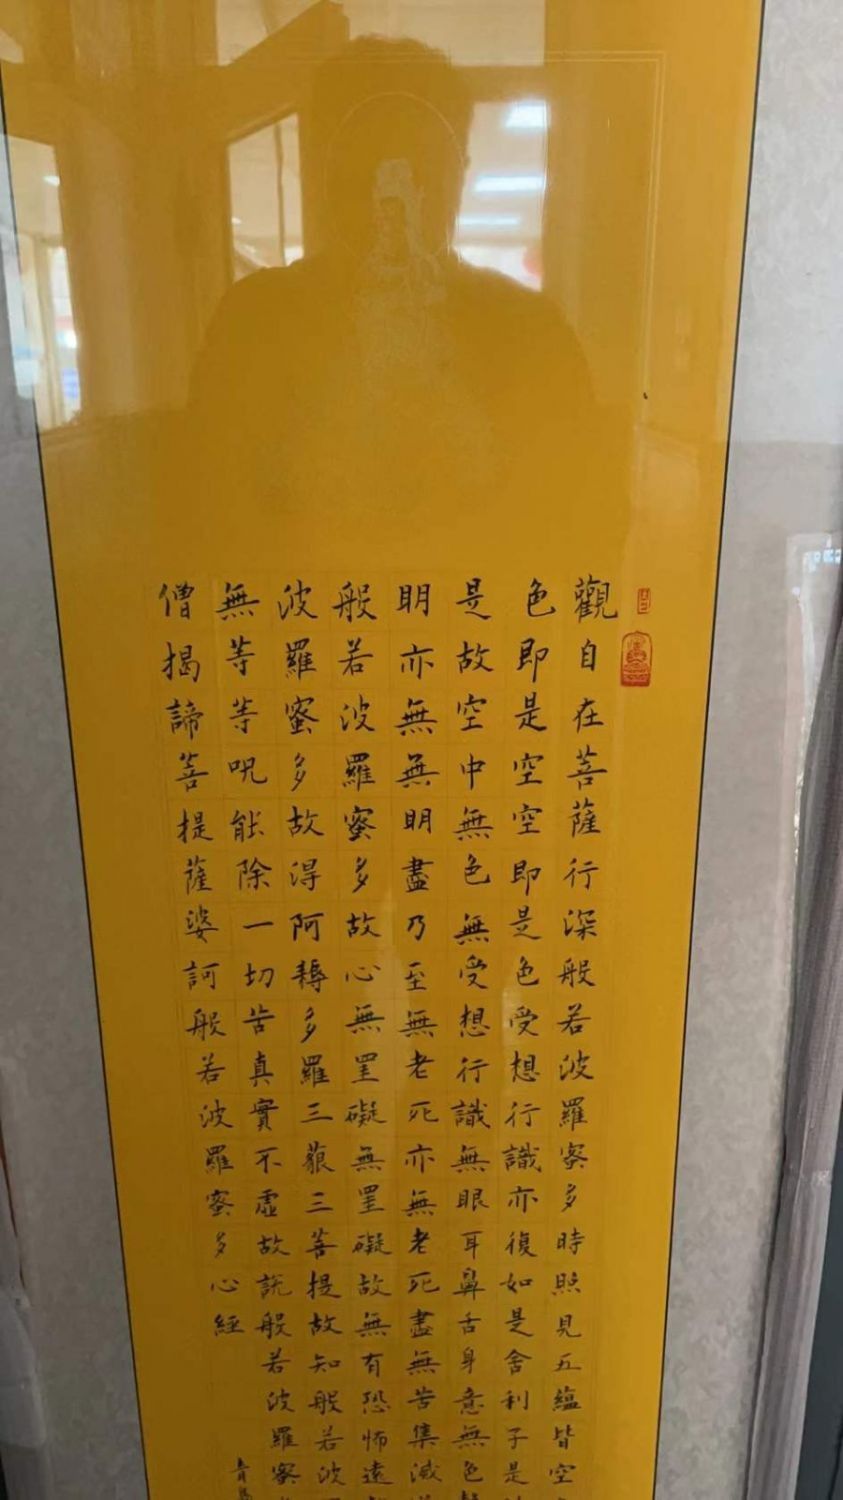 觀自在菩薩行深般若波羅蜜多時照見五蘊皆空
色即是空空即是色受想行識亦復如是舍利子是
是故空中無色無受想行識無眼耳鼻舌身意無色
明亦無無明盡乃至無老死亦無老死盡無苦集滅
般若波羅蜜多故心無罣礙無罣礙故無有恐怖遠
波羅蜜多故得阿耨多羅三藐三菩提故知般若波
無等等呪能除一切苦真實不虛故說般若波羅蜜
僧揭諦菩提薩婆訶般若波羅蜜多心經